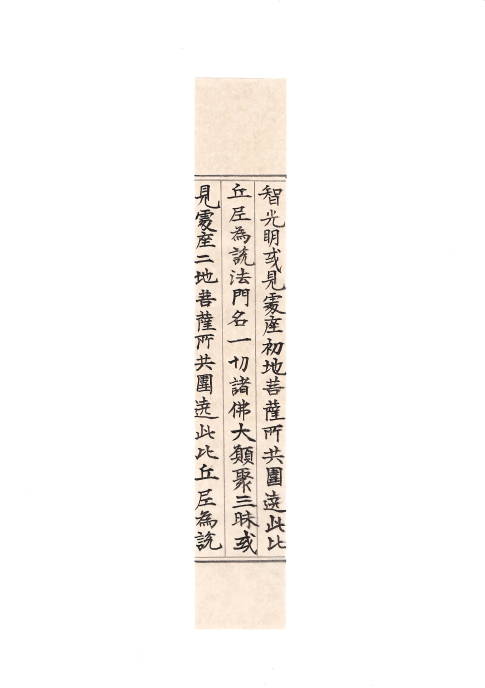 智光明或見處座初地菩薩所共圍遶此比
丘尼為說法門名一切諸佛大願聚三昧或
見處座二地菩薩所共圍遶此比丘尼為說